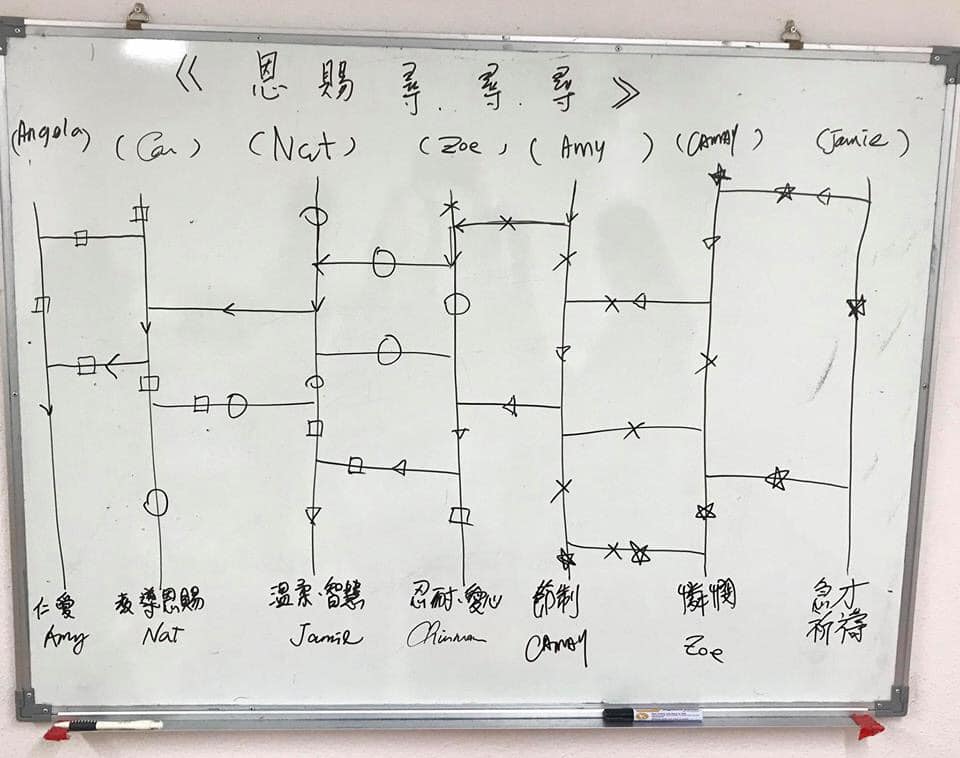 《 恩 賜 尋 . 尋 . 尋 》
(Angela) (Can) (Nat) (Zoe) (Amy) (CAMAY) (Jamie)
仁愛 教導恩賜 溫柔·智慧 忍耐·愛心 節制 憐憫 急才
祈禱
Amy Nat Jamie CAMAY Zoe